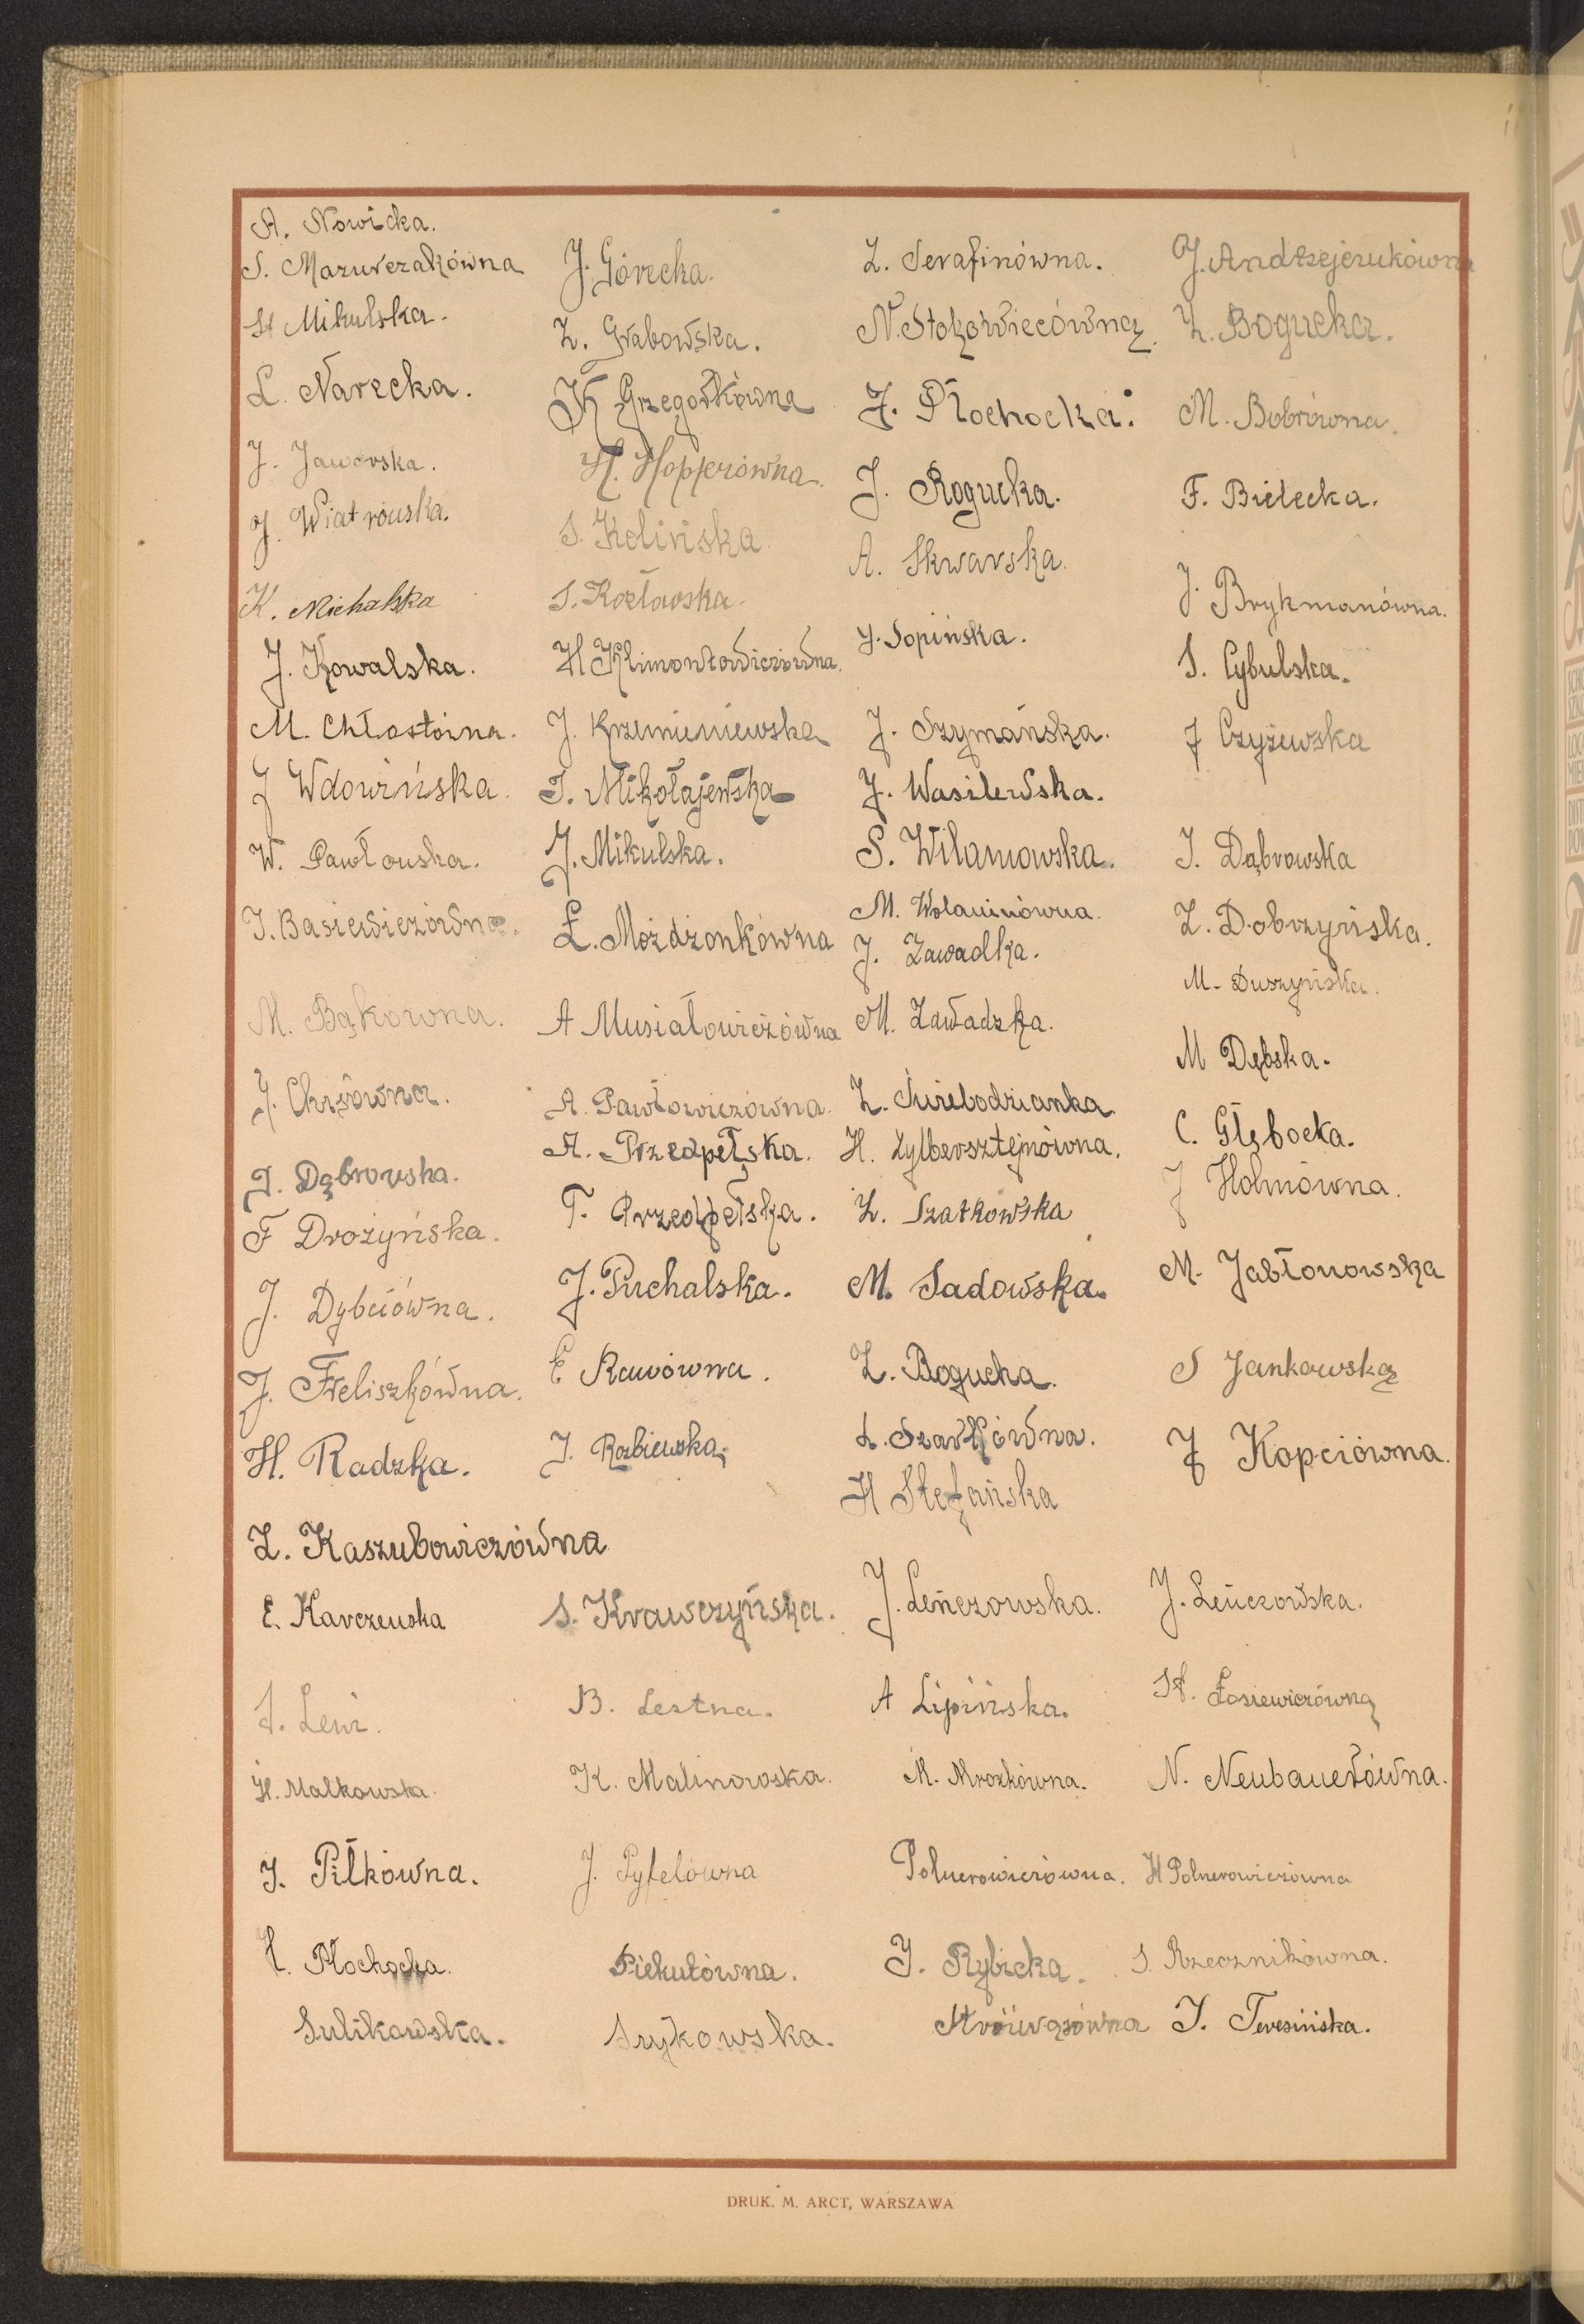 A. Nowicka.
S. Mazurczakówna
H Mikulska.
L. Narecka.
J. Jaworska.
J. Wiatrowska.
K. Michalska
J. Kowalska.
M. Chłostówna.
J Wdowińska.
W. Pawłowska.
J. Basiewiczówna.
M. Bąkowna.
J. Chrisówna.
J. Dąbrowska.
F Drożyńska.
J. Dybciówna.
J. Feliszkówna.
H. Radzka.
Z. Kaszubowiczówna
E. Karczewska
S. Lewi.
H. Malkowska.
J. Piłkówna.
H. Płochocka.
Sulikowska.
J. Górecka.
Z. Grabowska.
K Grzegorkówna
H. Hopferówna.
S. Kolińska
S. Kozłowska.
H Klimontowiczówna.
J. Krzemieniewska
T. Mikołajewska
J. Mikulska.
Ł. Możdżonkówna
A Musiałowiczówna
A. Pawłowiczówna.
A. Przedpełska.
T. Przedpełska.
J. Puchalska.
E Rawówna.
J. Rozbiewska
S. Krawczyńska.
B. Lestna.
K. Malinowska.
J. Pyfelówna
Piekutówna.
Sujkowska.
Z. Serafinówna.
N. Stokowiecówna.
J. Płochocka.
J. Rogucka.
A. Skwarska.
J. Sopińska.
J. Szymańska.
J. Wasilewska.
S. Wilamowska.
M. Wolaninówna.
J. Zawadka.
M. Zawadzka.
Z. Świebodzianka
H. Zylbersztejnówna.
Z. Szatkowska
M. Sadowska.
Z. Bogucka.
L. Szarkówna.
H Stefańska
J. Leńczowska.
A Lipińska.
M. Mrozkówna.
Polnerowiczówna.
J. Rybicka.
J. Andrzejczukówna
Z. Bogucka.
M. Bobrówna.
F. Bielecka.
J. Brykmanówna.
S. Cybulska.
J Czyżewska
J. Dąbrowska
Z. Dobrzyńska.
M. Duszyńska.
M Dębska.
C. Głębocka.
J Holmówna.
M. Jabłonowska
S Jankowska
J Kopciówna.
J. Leńczowska.
H. Łosiewiczówna
N. Neubauerówna.
H Polnerowiczówna
S. Rzecznikówna.
J. Teresińska.
DRUK. M. ARCT, WARSZAWA